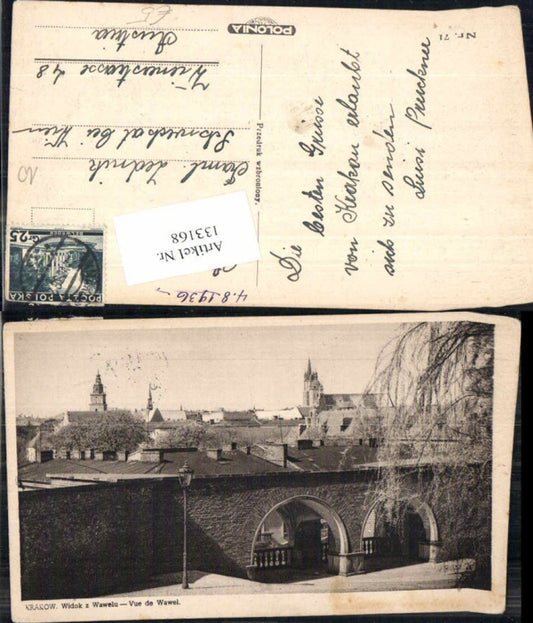 POLONIA
Nr. 71
Die besten Grüsse
von Krakau erlaubt
sich zu senden
Luisi
Przedruk wzbroniony.
Faml. Zednik
Schwechat bei Wien
Wienerstrasse 48
Austria
GR. 25
POCZTA POLSKA
Artikel Nr.
133168
4.8.1936
KRAKÓW. Widok z Wawelu — Vue de Wawel.